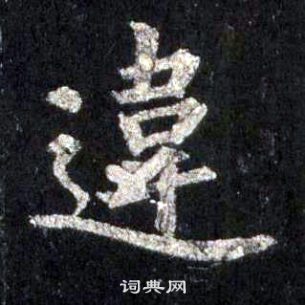 違
词典网